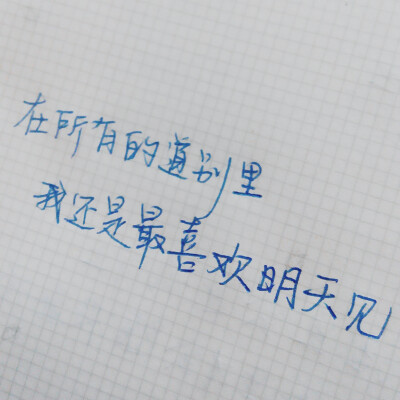 在所有的道别里
我还是最喜欢明天见